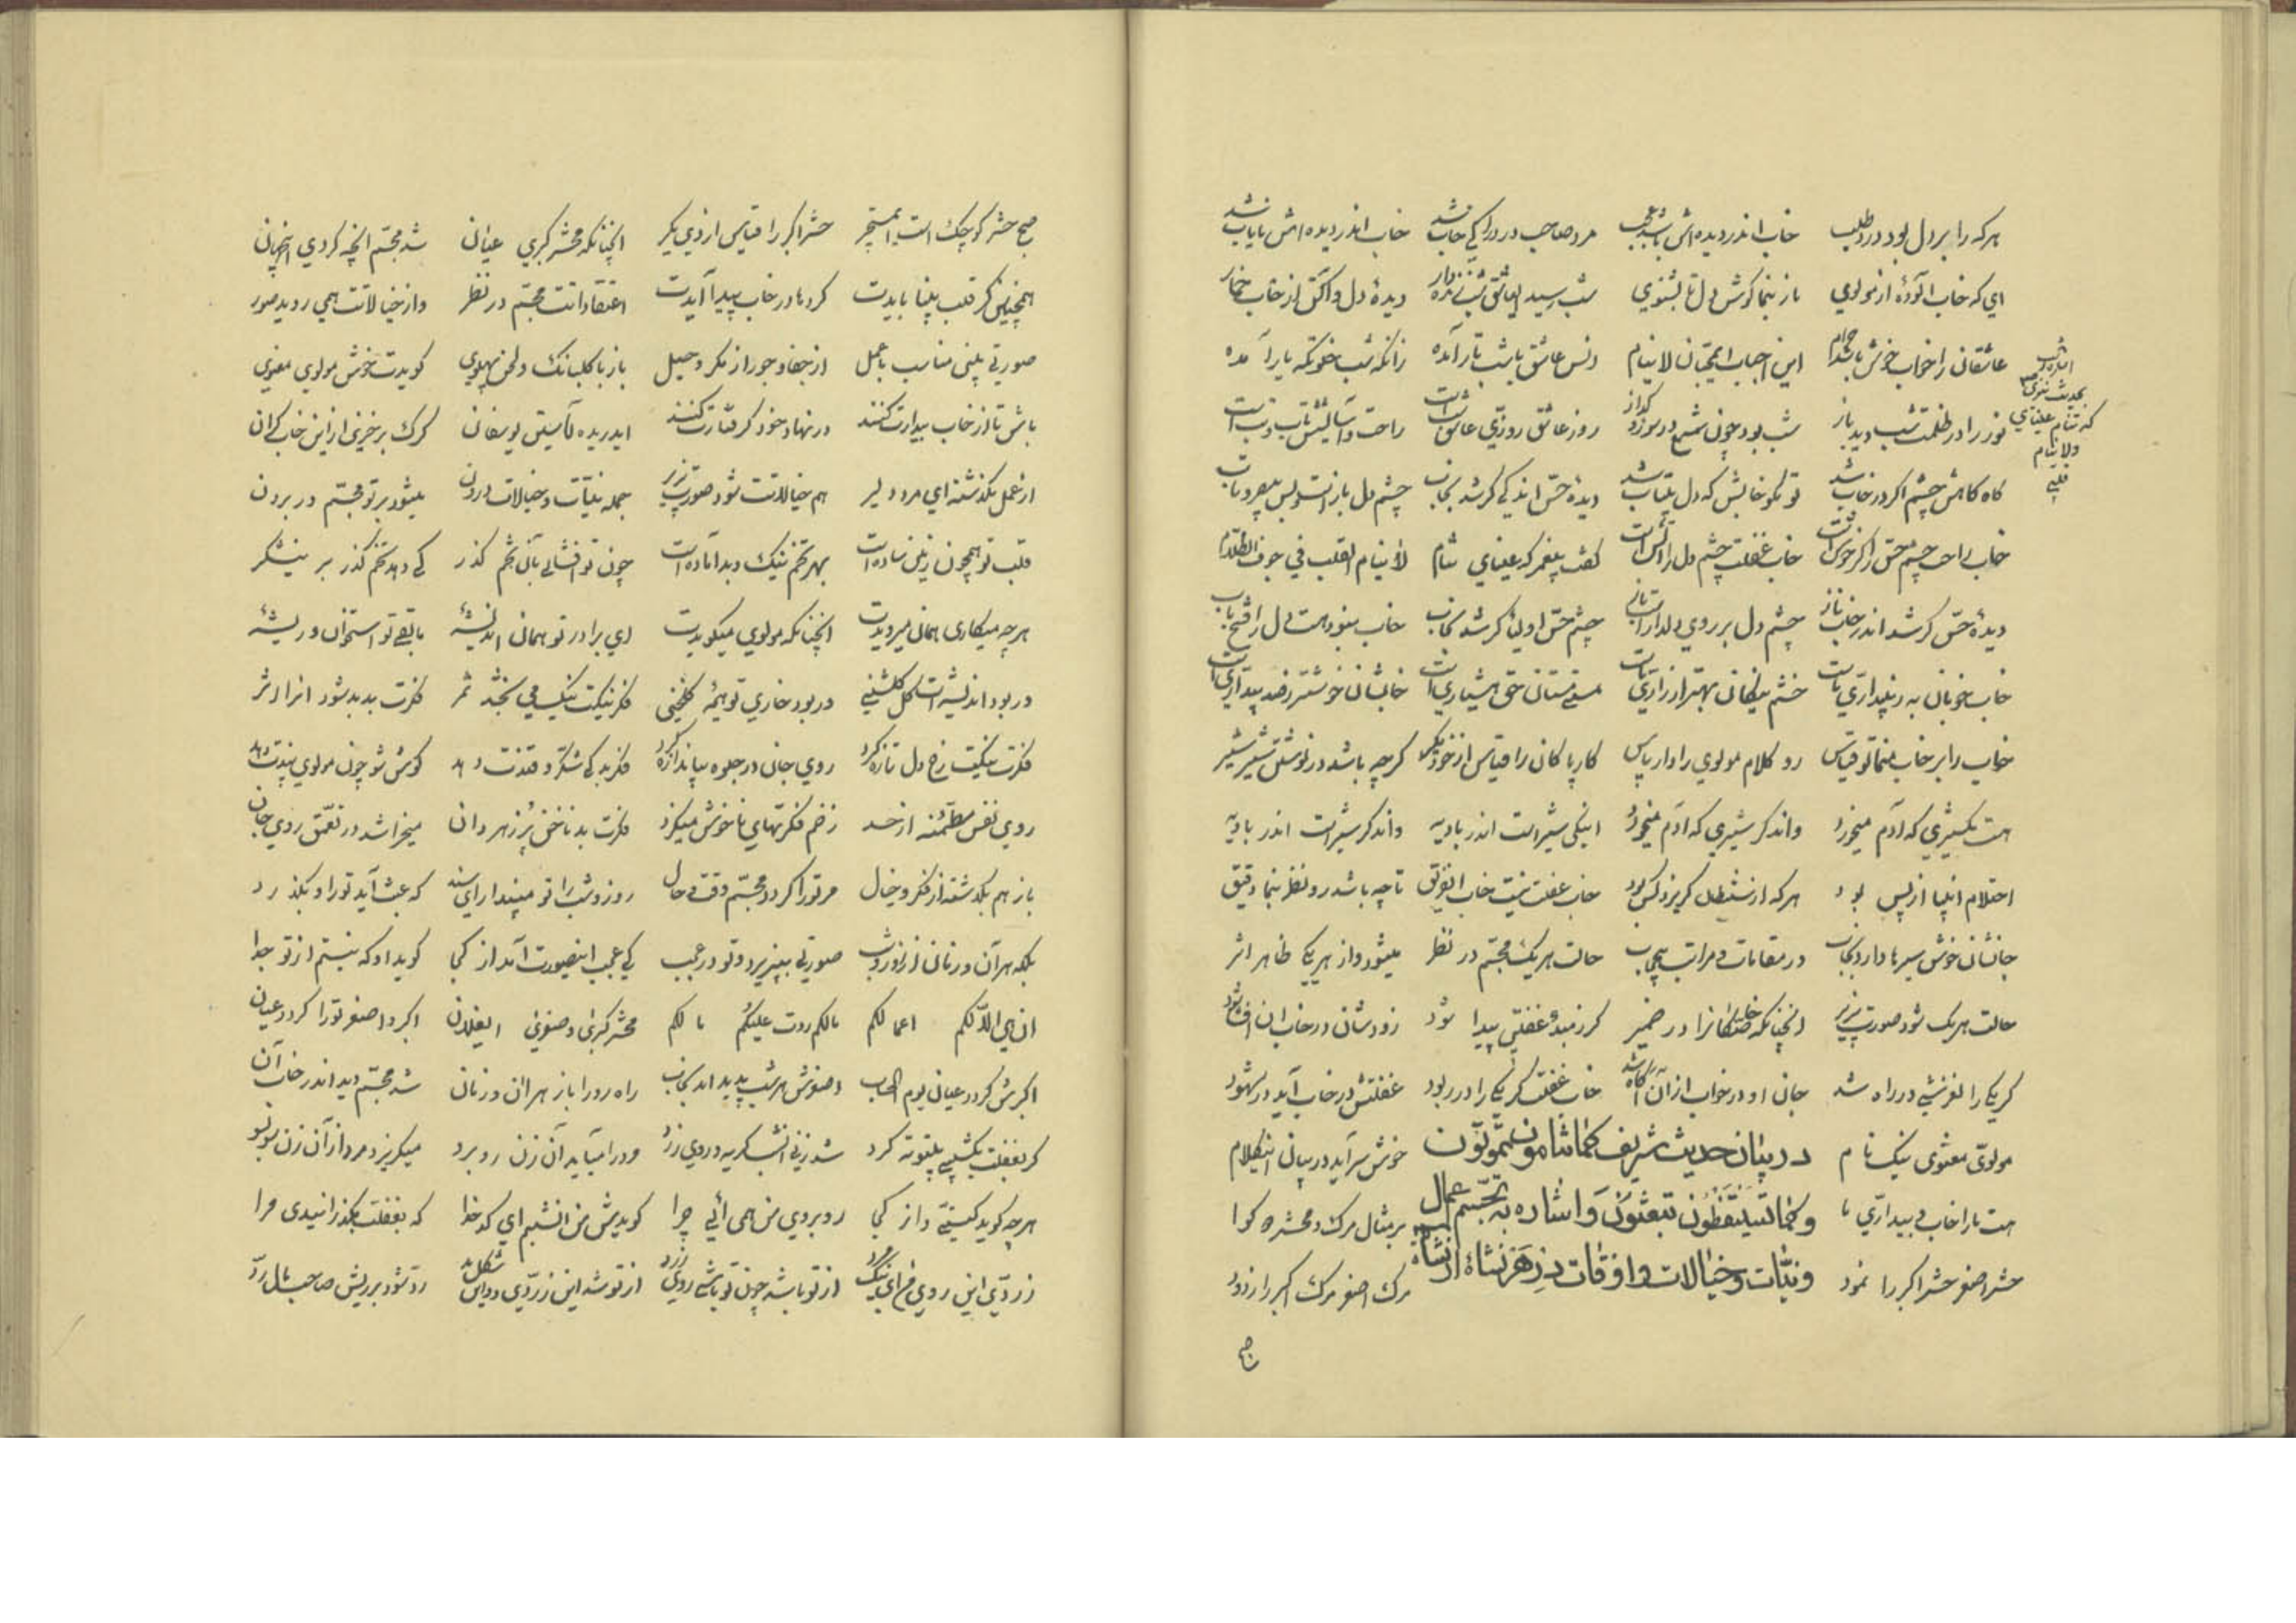 هرکه را بر دل بود درد طلب خاب اندر دیده اش باشد عجب مرد صاحب درد را کی خاب شد خاب اندر دیده اش نایاب شد
ای که خاب آلودهٔ از مولوی باز بنما گوش دل تا بشنوی شب رسید ای عاشق شب زنده دار دیدهٔ دل واکن از خاب خمار
عاشقان را خواب خوش باشد حرام این احباب المحبان لاینام انس عاشق با شب تار آمده زانکه شب خلوتگه یار آمده
نور را در ظلمت شب دید باز شب بود چون شمع در سوز و گداز روز عاشق روزی عاشق شب است راحت و آسایشش تاب و تب است
گاه گاهش چشم اگر در خاب شد تو مگو خابش که دل بیتاب شد دیدهٔ حس اندکی گر شد بخاب چشم دل باز است و بس بیصبر و تاب
خاب راحت چشم حس را گر خوش است خاب غفلت چشم دل را آتش است گفت پیغمبر که عینای تنام لا ینام القلب فی جوف الظلام
دیدهٔ حس گر شد اندر خاب ناز چشم دل بر روی دلدار است باز چشم حس اولیا گر شد بخاب خاب نبود هست دل را فتح باب
خاب خوبان به ز بیداری ماست خشم نیکان بهتر از زاری ماست مستی مستان حق هشیاری است خابشان خوشتر ز صد بیداری است
خاب را بر خاب منما تو قیاس رو کلام مولوی را دار پاس کار پاکان را قیاس از خود مگیر گرچه باشد در نوشتن شیر شیر
هست یکشیری که آدم میخورد واندگر شیری که آدم میخورد این یکی شیر است اندر بادیه واندگر شیر است اندر بادیه
احتلام انبیا از پس بود هرکه از شیطان گریزد کس بود خاب غفلت نیست خاب ای رفیق تا چه باشد رو نظر بنما دقیق
جانشان خوش سیرها دارد بخاب در مقامات و مراتب بیحجاب حالت هر یک مجسم در نظر میشود وز هر یکی ظاهر اثر
حالت هر یک شود صورت پذیر آنچنانکه خفتگانرا در ضمیر گر ز مبدء غفلتی پیدا شود زودشان در خاب آن افشا شود
گر یکی را لغزشی در راه شد جان او در خواب از آن آگاه شد خاب غفلت گر یکی را در ربود غفلتش در خاب آید در شهود
مولوی معنوی نیک نام در بیان حدیث شریف کما تنامون تموتون خوش سراید در بیان این کلام
هست ما را خاب و بیداری ما وکما تستیقظون تبعثون و اشاره به تجسم اعمال بر مثال مرگ و محشر دو گوا
حشر اصغر حشر اکبر را نمود و نیات و خیالات و اوقات در هر نشاۀ از نشاۀ مرگ اصغر مرگ اکبر را زدود
اشارت
بحدیث نبوی
که تنام عینای
ولا ینام
قلبی
صبح
صبح حشر کوچک است ای مستجیر حشر اکبر را قیاس از وی بگیر آنچنانکه محشر کبری عیان شد مجسم آنچه کردی در نهان
همچنین گر قلب بینا بایدت کردها در خاب پیدا آیدت اعتقادات مجسم در نظر واز خیالاتت همی روید صور
صورتی بینی مناسب با عمل از جفا و جور از مکر و حیل باز با گلبانگ و لحن پهلوی گویدت خوش مولوی معنوی
باش تا از خاب بیدارت کنند در نهاد خود گرفتارت کنند ای دریده پوستین یوسفان گرگ برخیزی از این خاب گران
از عمل بگذشته ای مرد دلیر هم خیالاتت شود صورت پذیر جمله نیات و خیالات درون میشود بر تو مجسم در برون
قلب تو همچون زمین ساده است بهر تخم نیک و بد آماده است چون تو افشانی بآن تخم گذر کی دهد تخم گذر بر نیشکر
هرچه میکاری همان میرویدت آنچنانکه مولوی میگویدت ای برادر تو همان اندیشهٔ مابقی تو استخوان و ریشهٔ
ور بود اندیشه ات گل گلشنی ور بود خاری تو هیمهٔ گلخنی فکر نیکت نیک می بخشد ثمر فکرت بد بد شود آنرا اثر
فکرت نیکیت رخ دل تازه کرد روی جان در جلوه بی اندازه کرد فکر بد کی شکر و قندت دهد گوش شو چون مولوی پندت دهد
روی نفس مطمئنه از حسد زخم فکرتهای ناخوش میکزد فکرت بد ناخن پر زهر دان میخراشد در تعمق روی جان
باز هم بگذشته از فکر و خیال مر تو را گردد مجسم وقت و حال روز و شب را تو مپندار ای سند که عبث آید تو را و بگذرد
بلکه هر آن و زمان از روز و شب صورتی بپذیرد و تو در عجب کی عجب اینصورت آمد از کجا گوید او که نیستم از تو جدا
ان هی الا لکم اعمالکم مالکم ردت علیکم مالکم محشر کبری و صغری ای فلان اکبر و اصغر تو را گردد عیان
اکبرش گردد عیان یوم الحساب اصغرش هر شب پدید اندر بخاب راه رو را باز هر آن و زمان شد مجسم دید اندر خاب آن
گر بغفلت یکشبی بیتوته کرد شد زنی آنشب کریه و روی زرد ور در امیآید آن زن روبرد میگریزد مرد از آن زن سوبسو
هرچه گوید کیستی و از کجا روبروی من همی آئی چرا گویدش من آن شبم ای کدخدا که بغفلت بگذرانیدی مرا
زردی این روی من ای نیک مرد از تو باشد چون تو باشی روی زرد از تو شد این زردی و این شکل بد رد شود بر ریش صاحب مال رد